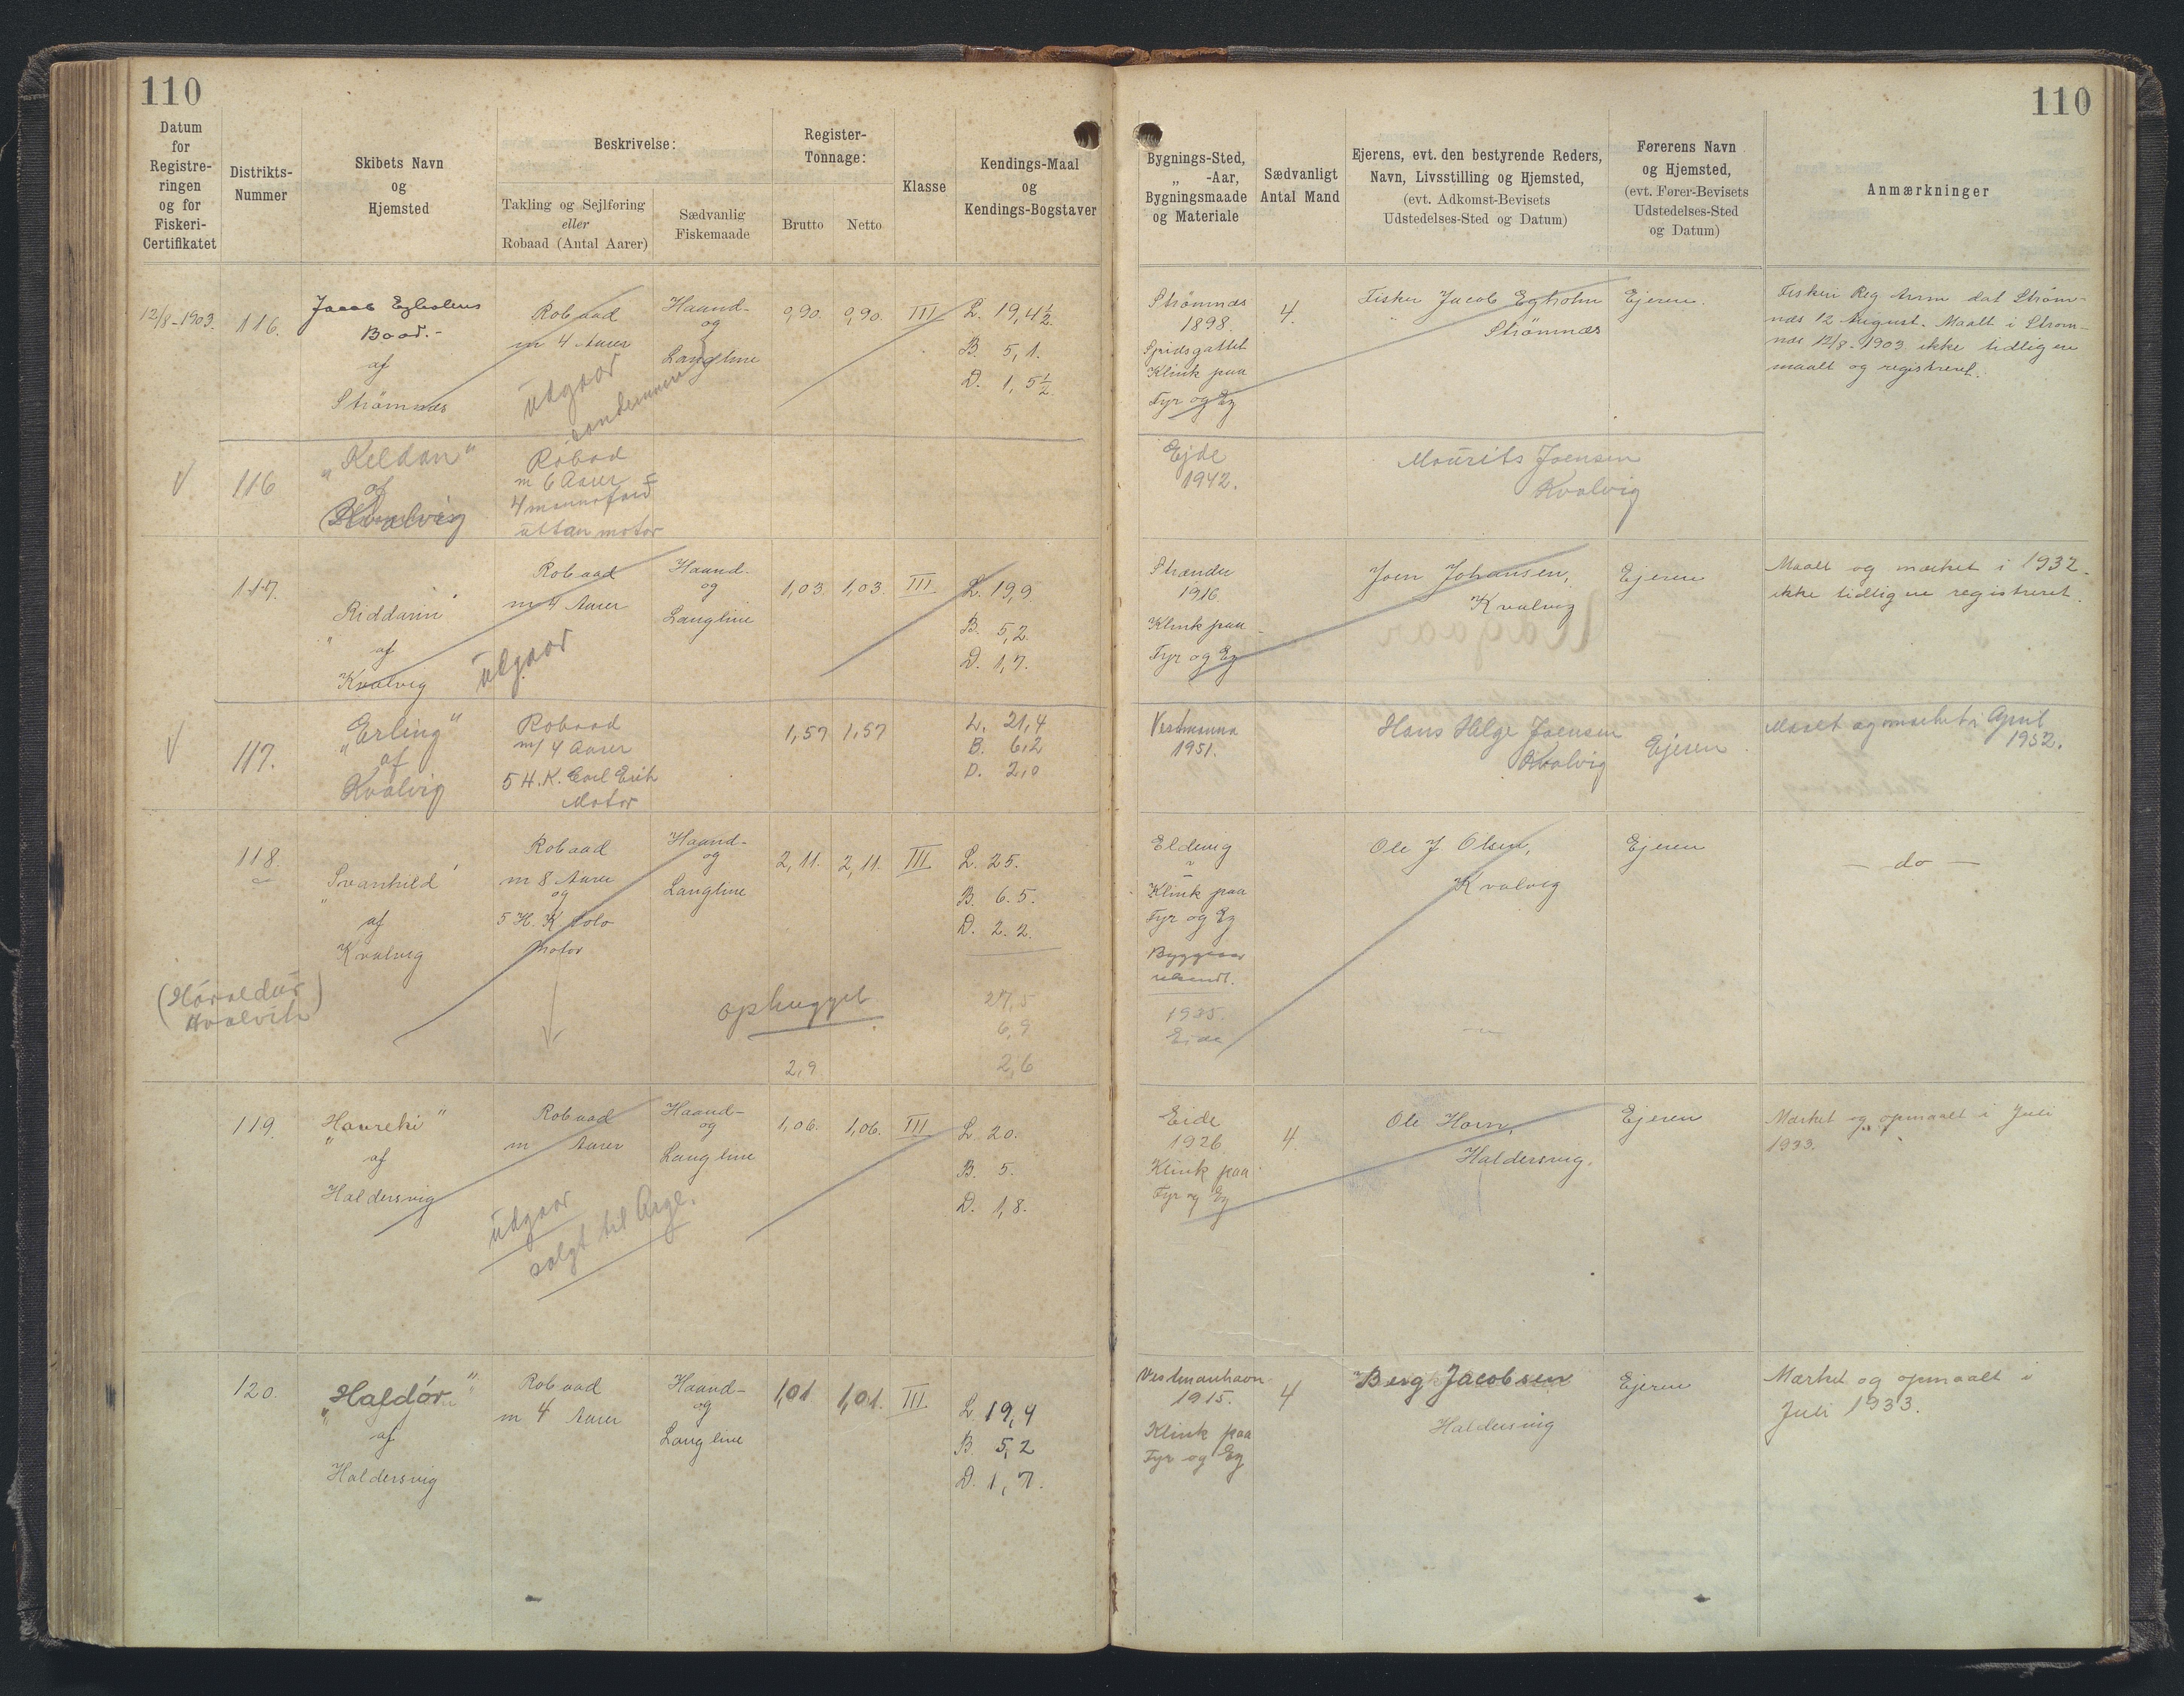 110
110
Datum
for
Registre-
ringen
og for
Fiskeri-
Certifikatet
Distrikts-
Nummer
Skibets Navn
og
Hjemsted
Beskrivelse:
Takling og Sejlføring
eller
Robaad (Antal Aarer)
Sædvanlig
Fiskemaade
Register-
Tonnage:
Brutto
Netto
Klasse
Kendings-Maal
og
Kendings-Bogstaver
Bygnings-Sted,
„ -Aar,
Bygningsmaade
og Materiale
Sædvanligt
Antal Mand
Ejerens, evt. den bestyrende Reders,
Navn, Livsstilling og Hjemsted,
(evt. Adkomst-Bevisets
Udstedelses-Sted og Datum)
Førerens Navn
og Hjemsted,
(evt. Fører-Bevisets
Udstedelses-Sted
og Datum)
Anmærkninger
12/8-1903.
116.
Jacob Egholms
Baad.-
af
Strømnæs
Robaad
m 4 Aarer
udgaar
Haand-
og
Langline
0,90.
0,90.
III
L. 19,4½.
B. 5,1.
D. 1,5½.
Strømnæs
1898.
Spidsgattet
Klink paa
Fyr og Eg
4.
Fisker Jacob Egholm
Strømnæs
Ejeren.
Fiskeri Reg Anm dat Strøm-
næs 12 August. Maalt i Strøm-
næs 12/8-1903 ikke tidligere
maalt og registreret.
116
„Keldan“
af
Kvalvig
Robaad
m 6 Aarer =
4mannafard
uttan motor
Ejde
1942.
Mourits Joensen
Kvalvig
117.
„Riddarin“
af
Kvalvig
Robaad
m 4 Aarer
udgaar
Haand-
og
Langline
1,03.
1,03.
III.
L. 19,9
B. 5,2.
D. 1,7.
Strænder
1916
Klink paa
Fyr og Eg
Joen Johansen,
Kvalvig
Ejeren
Maalt og mærket i 1932.
ikke tidligere registreret.
117.
„Erling“
af
Kvalvig
Robaad
m/ 4 Aarer
5 H.K.
Motor
1,57
1,57
L. 21,4
B. 6,2
D. 2,0
Vestmanna
1951.
Hans Helge Joensen
Kvalvig
Ejeren
Maalt og mærket i April
1952.
118.
„Svanhild“
af
Kvalvig
Robaad
m 8 Aarer
og
5 H. K Solo
Motor
Haand-
og
Langline
2,11.
2,11.
III
L. 25.
B. 6.5.
D. 2.2.
Eldevig
Klink paa
Fyr og Eg
Byggeaar
ubendt.
1935.
Eide
Ole J Olsen,
Kvalvig
Ejeren
— do —
(Haraldur
Hvalvik)
ophugget
27,5
6,9
2,6
2,9
119.
„Havreki“
af
Haldersvig
Robaad
m Aarer
udgaar
solgt til Arge.
Haand-
og
Langline
1,06.
1,06.
III
L. 20.
B. 5.
D. 1,8.
Eide
1926
Klink paa
Fyr og Eg
4.
Ole Horn,
Haldersvig.
Ejeren
Mærket og opmaalt i Juli
1933.
120.
„Haldór“
af
Haldersvig
Robaad
m 4 Aarer
Haand-
og
Langline
1,01
1,01.
III.
L 19,4
B. 5,2
D. 1,7.
Vestmanhavn
1915.
Klink paa
Fyr og Eg
4
Berg Jacobsen
Haldersvig
Ejeren
Mærket og opmaalt i
Juli 1933.